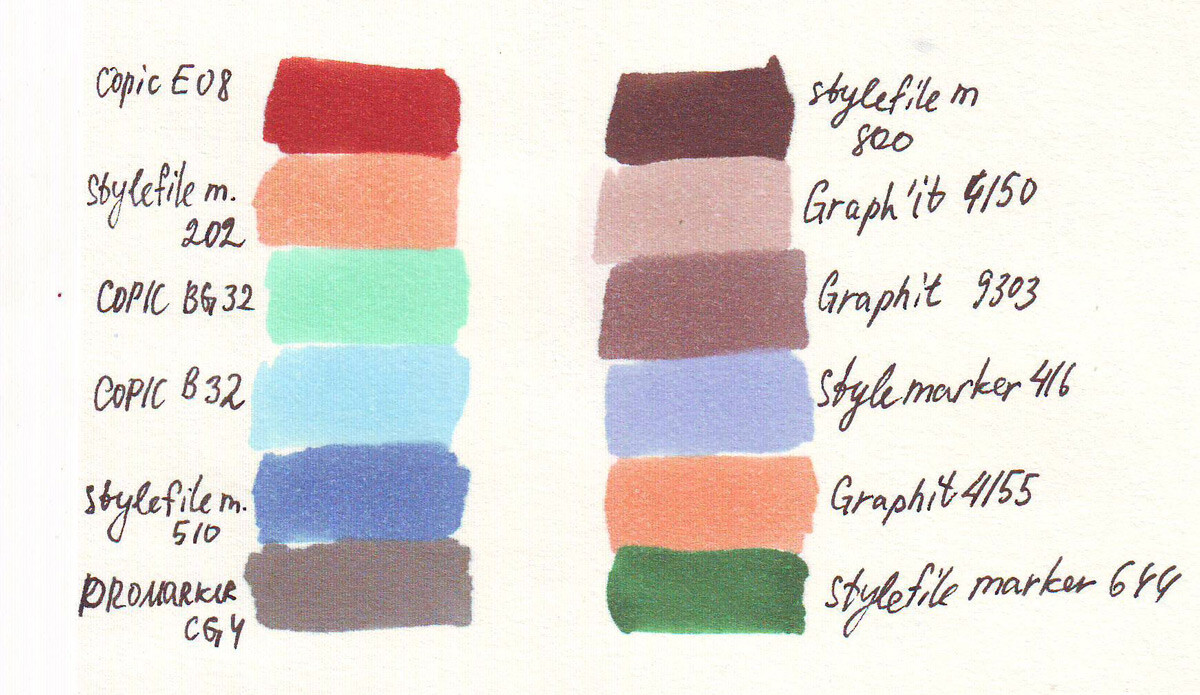 Copic E08
Stylefile m.
202
COPIC BG32
COPIC B32
Stylefile m.
510
PROMARKER
CG4
Stylefile m
800
Graph'it 4150
Graphit 9303
Style marker 416
Graphit 4155
Stylefile marker 644